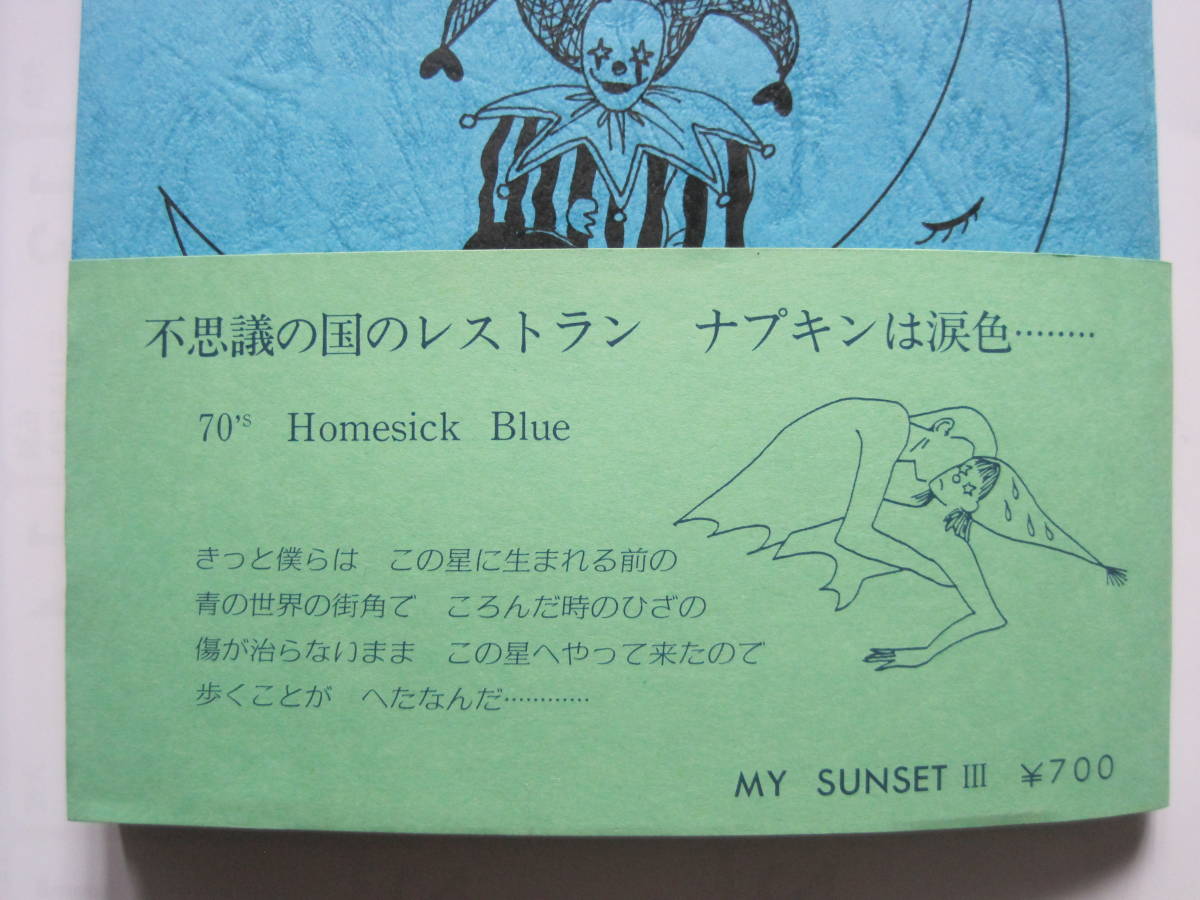 不思議の国のレストラン　ナプキンは涙色………
70's Homesick Blue
きっと僕らは　この星に生まれる前の
青の世界の街角で　ころんだ時のひざの
傷が治らないまま　この星へやって来たので
歩くことが　へたなんだ…………
MY SUNSET III ¥700